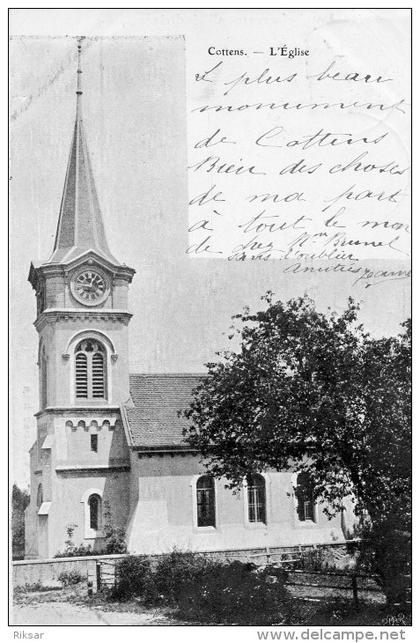 Cottens. — L'Église
Le plus beau
monument
de Cottens
Bien des choses
de ma part
à tout le mon
de chez Mr Brunel
sans l'oublier
Amitiés Jeanne
Riksar
www.delcampe.net